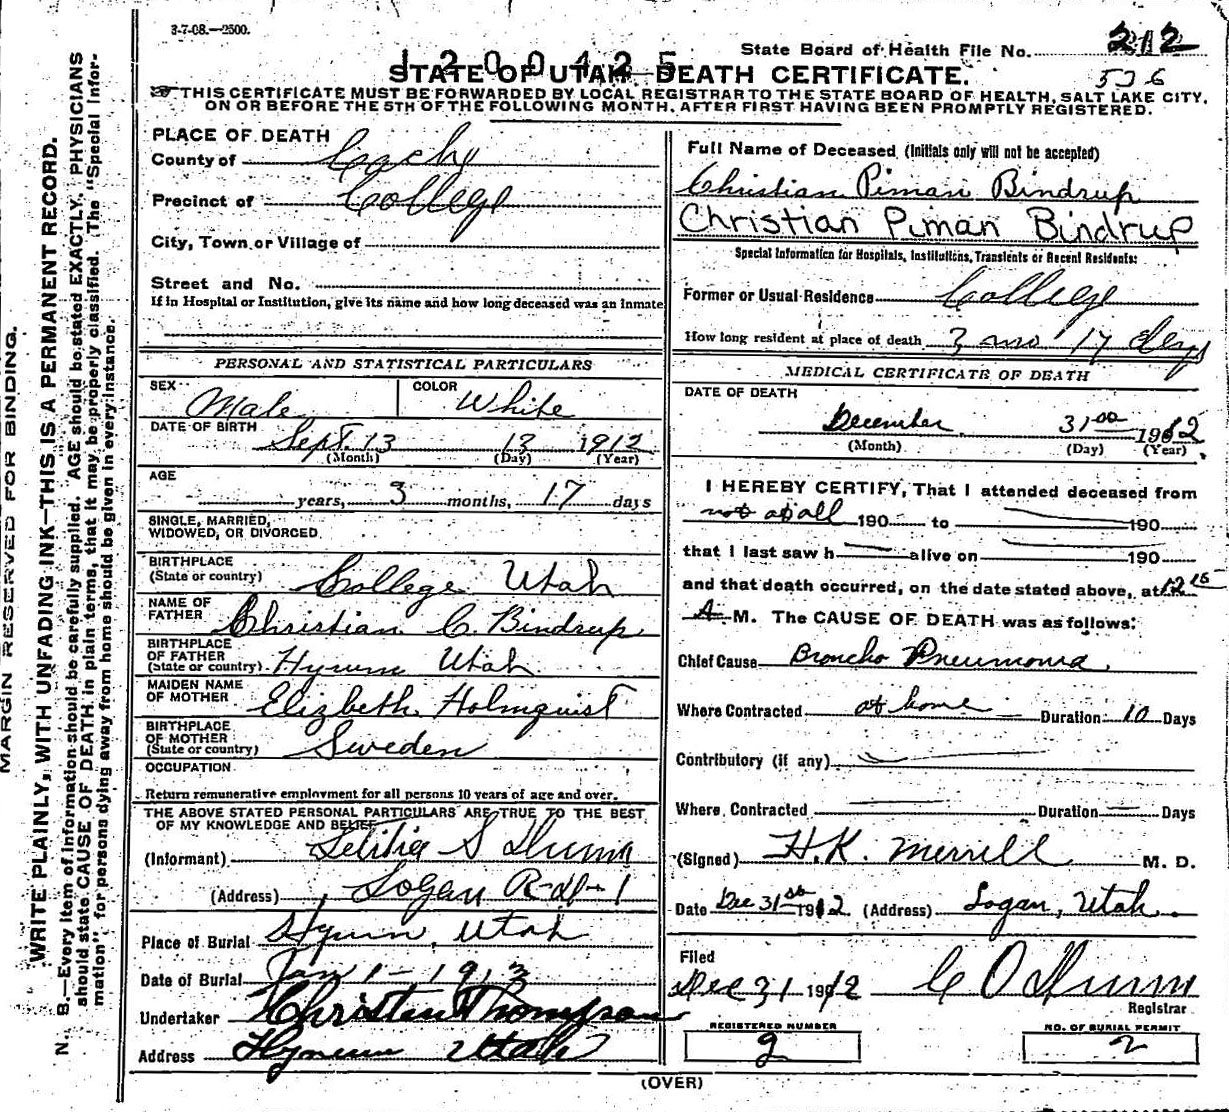 3-7-08.—2500.
State Board of Health File No. 212
1200425
536
STATE OF UTAH—DEATH CERTIFICATE.
THIS CERTIFICATE MUST BE FORWARDED BY LOCAL REGISTRAR TO THE STATE BOARD OF HEALTH, SALT LAKE CITY,
ON OR BEFORE THE 5TH OF THE FOLLOWING MONTH, AFTER FIRST HAVING BEEN PROMPTLY REGISTERED.
MARGIN RESERVED FOR BINDING.
WRITE PLAINLY, WITH UNFADING INK—THIS IS A PERMANENT RECORD.
N. B.—Every item of information should be carefully supplied. AGE should be stated EXACTLY. PHYSICIANS
should state CAUSE OF DEATH in plain terms, that it may be properly classified. The "Special Infor-
mation" for persons dying away from home should be given in every instance.
PLACE OF DEATH
County of Cache
Precinct of College
City, Town or Village of
Street and No.
If in Hospital or Institution, give its name and how long deceased was an inmate
PERSONAL AND STATISTICAL PARTICULARS
SEX Male COLOR White
DATE OF BIRTH Sept. 13 13 1912
(Month) (Day) (Year)
AGE
years, 3 months, 17 days
SINGLE, MARRIED,
WIDOWED, OR DIVORCED
BIRTHPLACE
(State or country) College Utah
NAME OF
FATHER Christian C. Bindrup
BIRTHPLACE
OF FATHER
(State or country) Hyrum Utah
MAIDEN NAME
OF MOTHER Elizbeth Holmquist
BIRTHPLACE
OF MOTHER
(State or country) Sweden
OCCUPATION
Return remunerative employment for all persons 10 years of age and over.
THE ABOVE STATED PERSONAL PARTICULARS ARE TRUE TO THE BEST
OF MY KNOWLEDGE AND BELIEF
(Informant) Letitia S Dunn
(Address) Logan R-d-1
Place of Burial Hyrum, Utah
Date of Burial Jan 1 - 1913
Undertaker Christian Thompson
Address Hyrum Utah
Full Name of Deceased (Initials only will not be accepted)
Christian Piman Bindrup
Christian Piman Bindrup
Special Information for Hospitals, Institutions, Transients or Recent Residents:
Former or Usual Residence College
How long resident at place of death 3 mo 17 dys
MEDICAL CERTIFICATE OF DEATH
DATE OF DEATH
December 31 1912
(Month) (Day) (Year)
I HEREBY CERTIFY, That I attended deceased from
not at all 190 to 190
that I last saw h alive on 190
and that death occurred, on the date stated above, at 12 15
A M. The CAUSE OF DEATH was as follows:
Chief Cause Broncho Pneumonia.
Where Contracted at home Duration 10 Days
Contributory (if any)
Where Contracted Duration Days
(Signed) H.K. Merrill M. D.
Date Dec 31 1912 (Address) Logan, Utah
Filed
Dec 31 1912 C O Dunn
Registrar
REGISTERED NUMBER
2
NO. OF BURIAL PERMIT
2
(OVER)